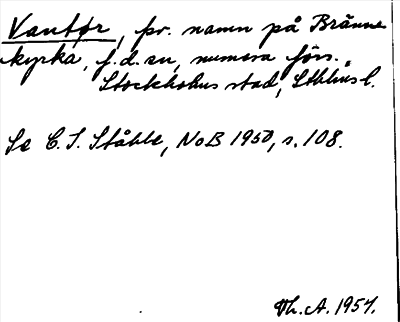 Vantör, fsv. namn på Bränne-
kyrka, f.d. sn, numera förs.,
Stockholms stad, Sthlms l.
Se C. I. Ståhle, NoB 1950, s. 108.
Th. A. 1957.